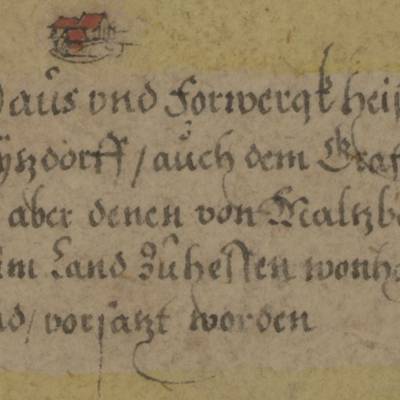 aus vnd Forwergk heis
ÿtzdorff / auch dem Graf
aber denen von Maltzb
im Land zu hessen wonh
d / vorsatzt worden